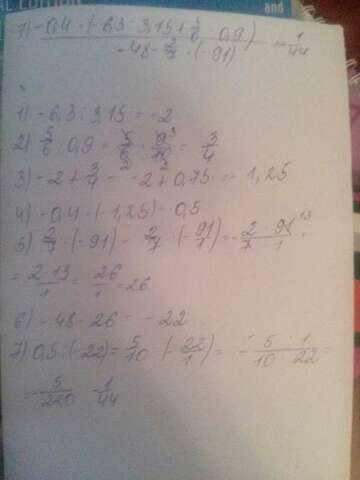 1) -0,4 · (-6,3 : 3,15 + 5/6 · 0,9) / -48 - 2/7 · (-91) = -1/44
1) -6,3 : 3,15 = -2
2) 5/6 · 0,9 = 5/6 · 9/10 = 3/4
3) -2 + 3/4 = -2 + 0,75 = -1,25
4) -0,4 · (-1,25) = 0,5
5) 2/7 · (-91) = 2/7 · (-91/1) = -2 · 91/7 · 1 =
= 2 · 13/1 = 26/1 = 26
6) -48 - 26 = -22
7) 0,5 : (-22) = 5/10 : (-22/1) = -5 · 1/10 · 22 =
= -5/220 = -1/44